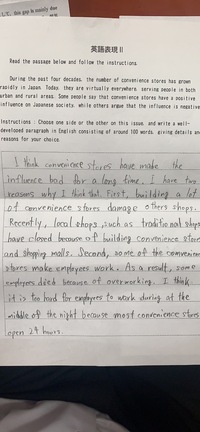 して, this gap is mainly due
英語表現Ⅱ
Read the passage below and follow the instructions.
During the past four decades, the number of convenience stores has grown
rapidly in Japan. Today, they are virtually everywhere, serving people in both
urban and rural areas. Some people say that convenience stores have a positive
influence on Japanese society, while others argue that the influence is negative.
Instructions : Choose one side or the other on this issue, and write a well-
developed paragraph in English consisting of around 100 words, giving details and
reasons for your choice.
I think convenience stores have make the
influence bad for a long time. I have two
reasons why I think that. First, building a lot
of convenience stores damage others shops.
Recently, local shops, such as traditional shops
have closed because of building convenience stores
and shopping malls. Second, some of the convenience
stores make employees work. As a result, some
employees died because of overworking. I think
it is too hard for employees to work during at the
middle of the night because most convenience stores
open 24 hours.